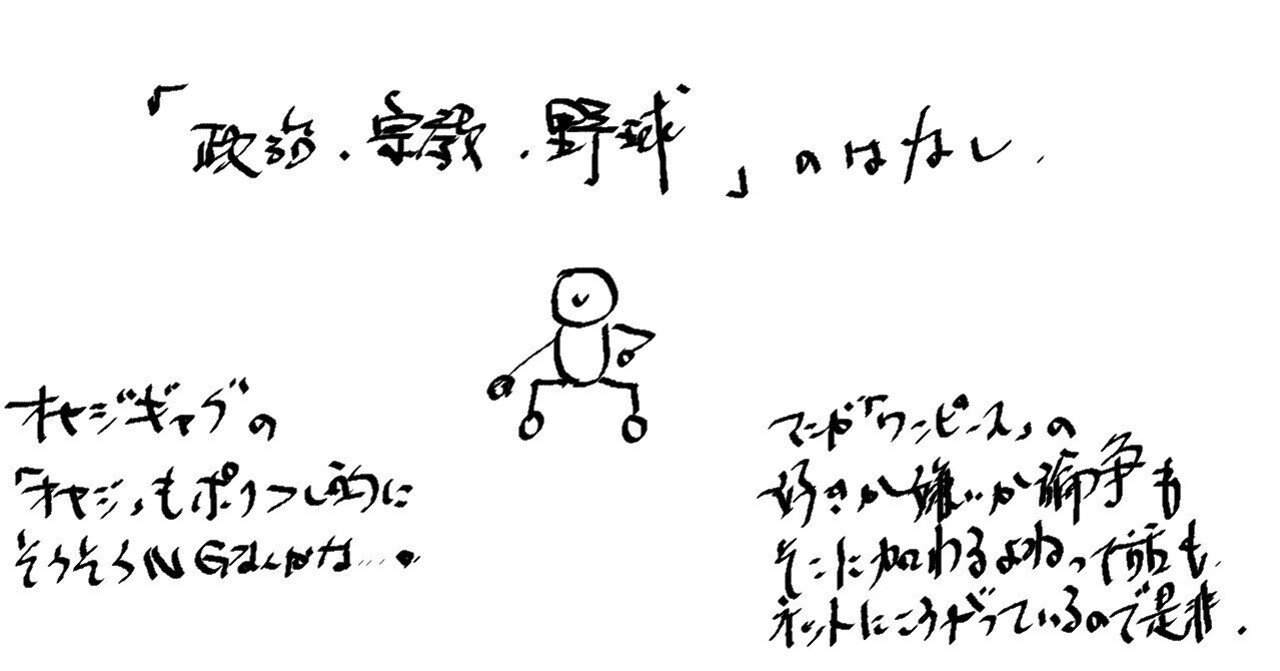 「政治・宗教・野球」のはなし.
オヤジギャグの
「オヤジ」もポリコレ的に
そろそろNGなんかな…。
マンガ「ワンピース」の
好きか嫌いか論争も
そこに加わるよねって話も
ネットにころがっているので是非.